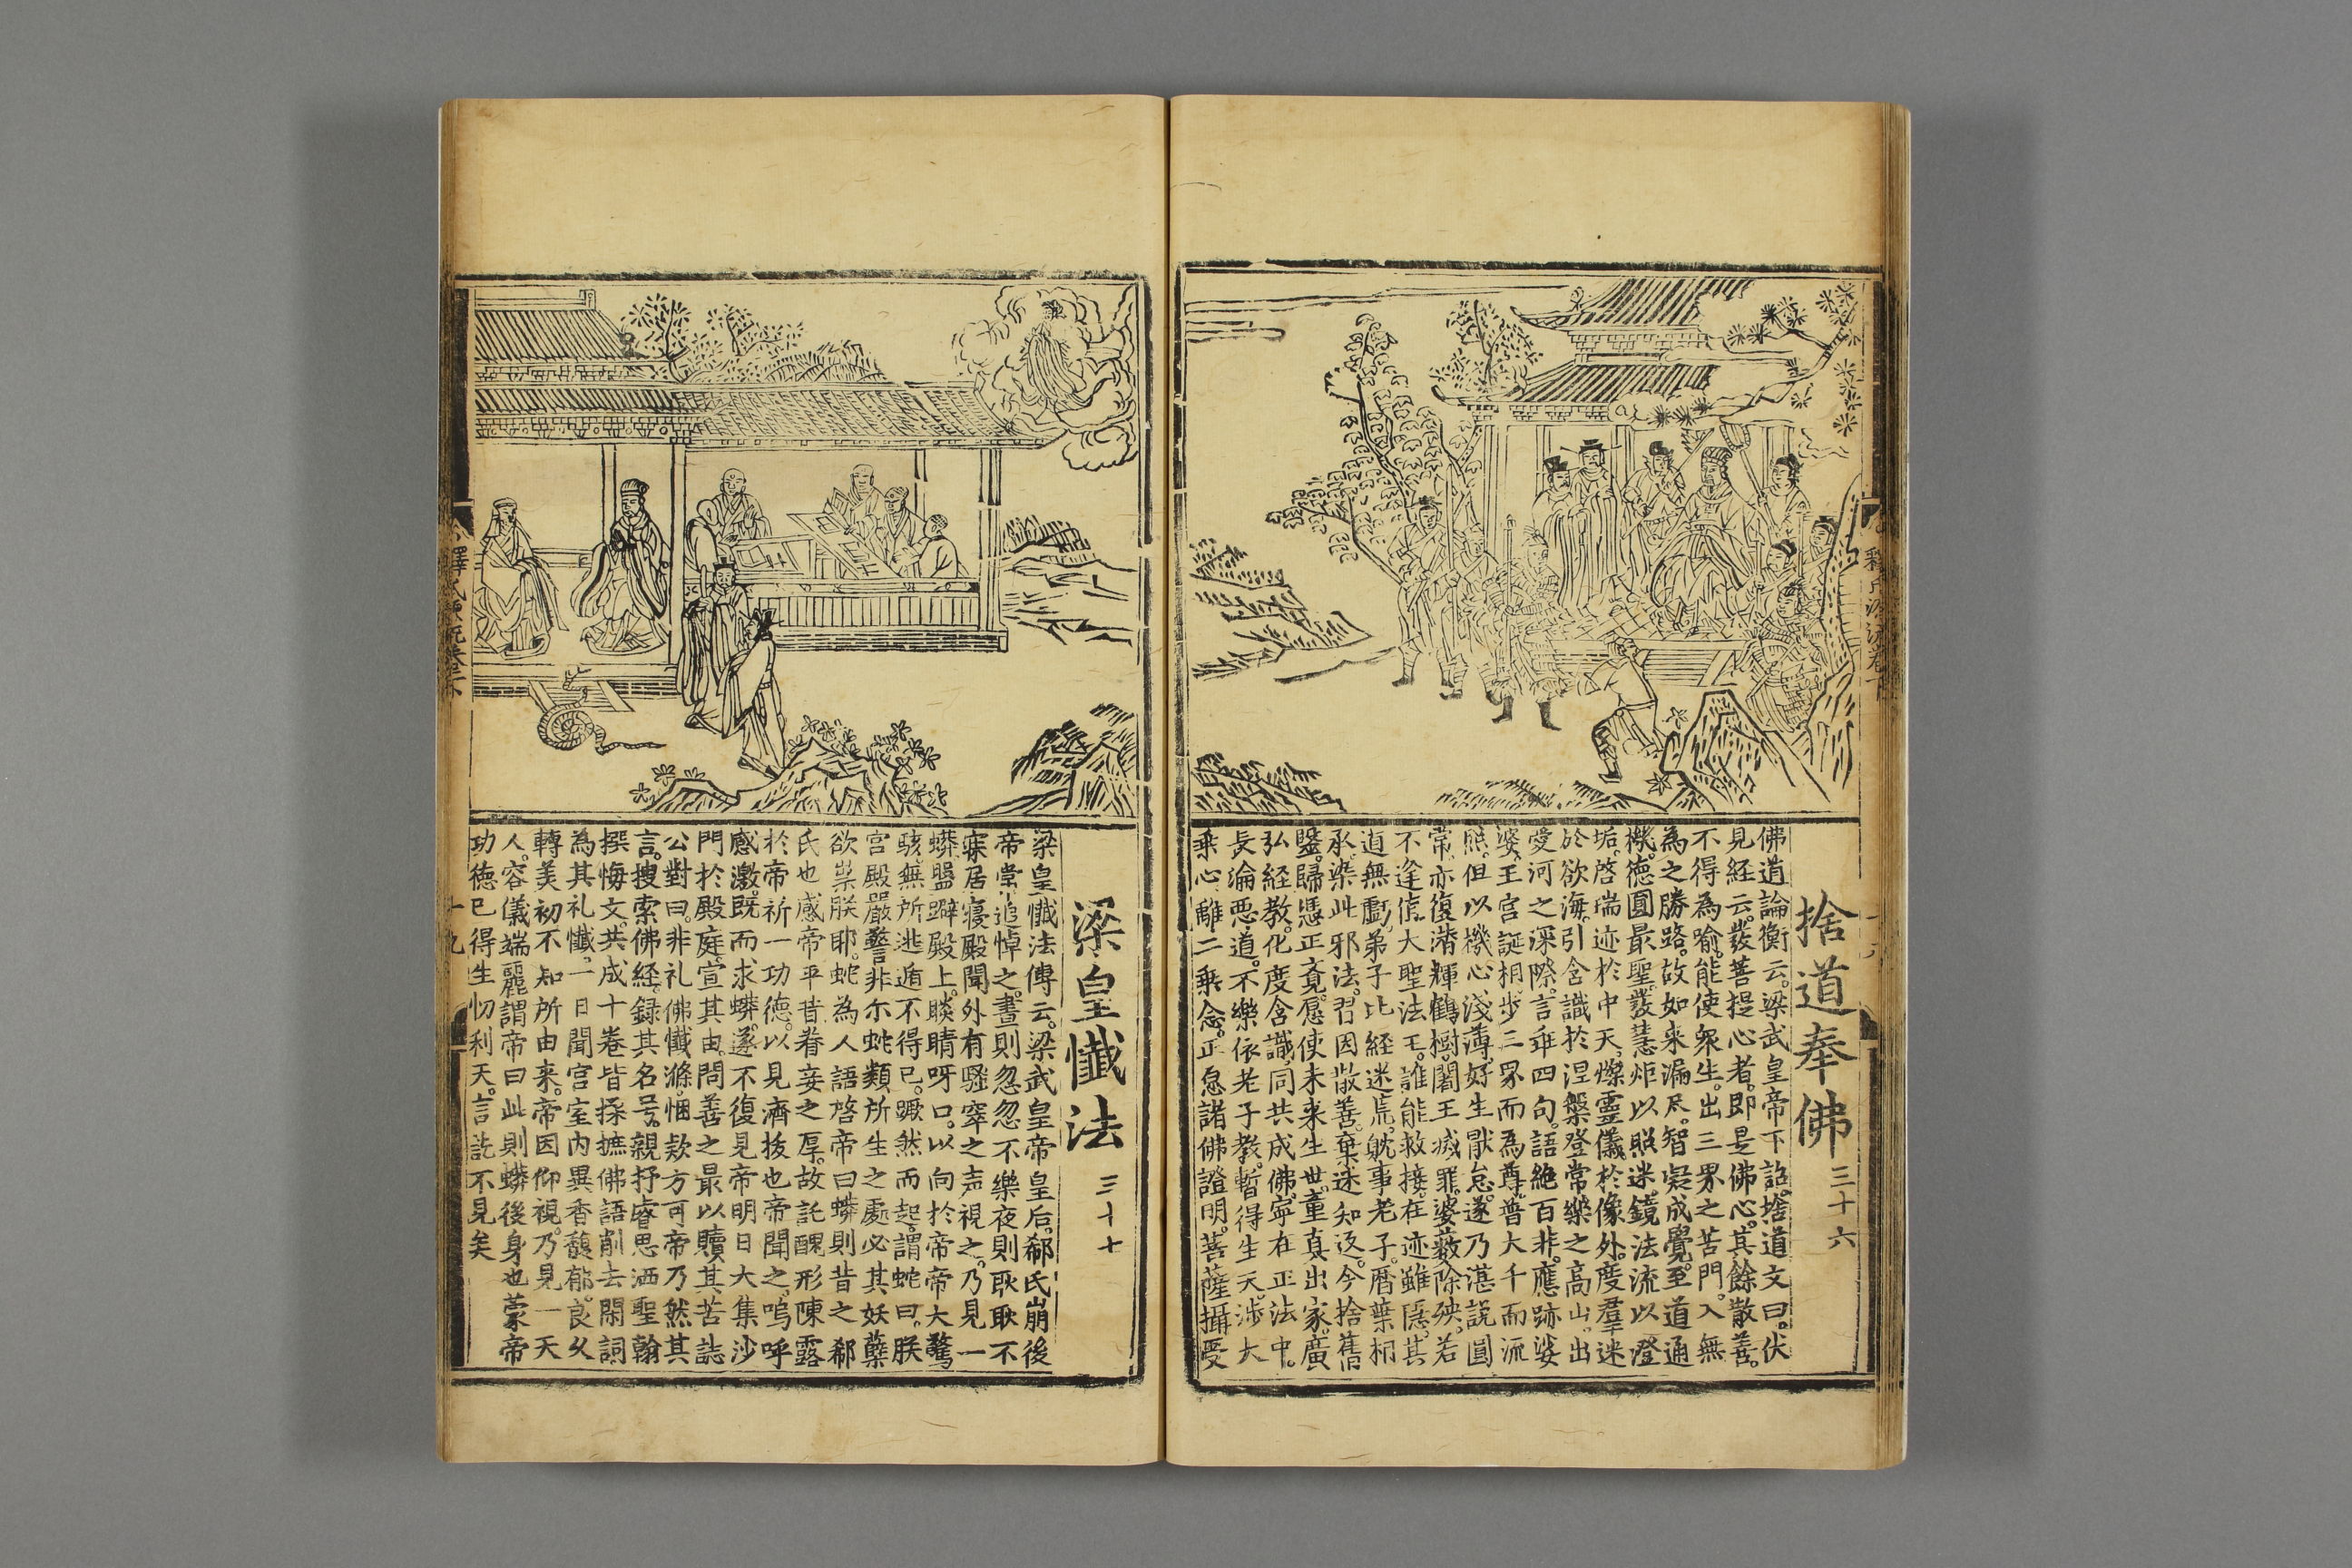 捨道奉佛 三十六
佛道論衡云。梁武皇帝下詔。捨道文曰。伏
見経云。發菩提心者。即是佛心。其餘散善。
不得為喻。能使衆生。出三界之苦門。入無
為之勝路。故如来漏尽。智凝成覺。至道通
機。德圓最聖。發慧炬以照迷。鏡法流以澄
垢。啓瑞迹於中天。爍靈儀於像外。度羣迷
於欲海。引含識於涅槃。登常樂之高山。出
愛河之深際。言乖四句。語絶百非。應跡娑
婆。王宮誕相。步三界而為尊。普大千而流
照。但以機心淺薄。好生厭怠。遂乃湛說圓
常。亦復潜輝鶴樹。闍王滅罪。婆薮除殃。若
不逢值大聖法王。誰能救接。在迹雖隱。其
道無虧。弟子比経迷荒。躭事老子。曆葉相
承。染此邪法。習因散善。棄迷知返。今捨舊
毉。歸憑正覚。愿使未来生世。童真出家。廣
弘経教。化度含識。同共成佛。寧在正法中。
長淪惡道。不樂依老子教。暫得生天。涉大
乘心。離二乘念。正愿諸佛證明。菩薩攝受
梁皇懺法 三十七
梁皇懺法傳云。梁武皇帝皇后。郗氏崩後
帝常追悼之。晝則忽忽不樂夜則耿耿不
寐居寢殿聞外有騷窣之声視之。乃見一
蟒盤躃殿上。睒睛呀口。以向於帝帝大驚
駭。無所逃遁不得已。蹶然而起。謂蛇曰。朕
宮殿嚴警非尓蛇類所生之處必其妖孽
欲祟朕耶。蛇為人語啓帝曰蟒則昔之郗
氏也感帝平昔眷妾之厚。故託醜形陳露
於帝祈一功德。以見濟拔也帝聞之嗚呼
感激。既而求蟒。遂不復見帝明日大集沙
門於殿庭。宣其由。問善之最以贖其苦誌
公對曰。非礼佛懺滌。悃欵方可帝乃然其
言。搜索佛経。録其名号。親抒睿思洒聖翰
撰悔文。共成十卷皆採摭佛語削去閑詞
為其礼懺。一日聞宮室内異香馥郁。良乆
轉美初不知所由来。帝因仰視。乃見一天
人。容儀端麗謂帝曰此則蟒後身也蒙帝
功徳已得生忉利天。言訖不見矣